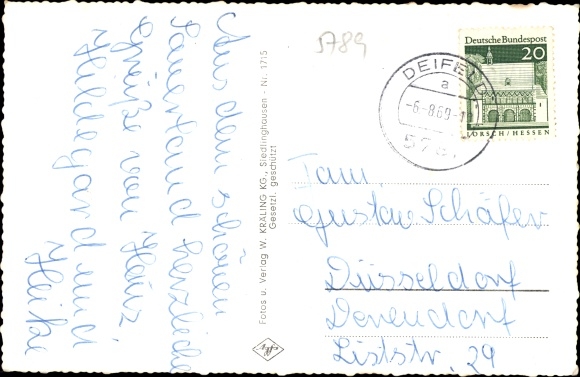 Aus dem schönen
Sauerland herzliche
Grüße von Heinz
Hildegard und
Heike
Fotos u. Verlag W. KRÄLING KG., Siedlinghausen - Nr. 1715
Gesetzl. geschützt
5789
DEIFELD
a
-6.-8.69-1
578
Deutsche Bundespost
20
LORSCH/HESSEN
Fam.
Gustav Schäfer
Düsseldorf
Derendorf
Liststr. 29